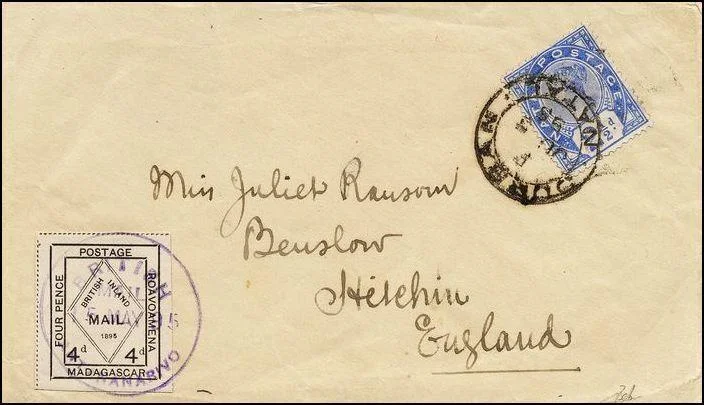 POSTAGE
DURBAN
NATAL
95
Miss Juliet Ransom
Benslow
Hitchin
England
POSTAGE
FOUR PENCE
ROAVOAMENA
BRITISH INLAND
MAIL
1895
4d 4d
MADAGASCAR
BRITISH
MAIL
MAY 95